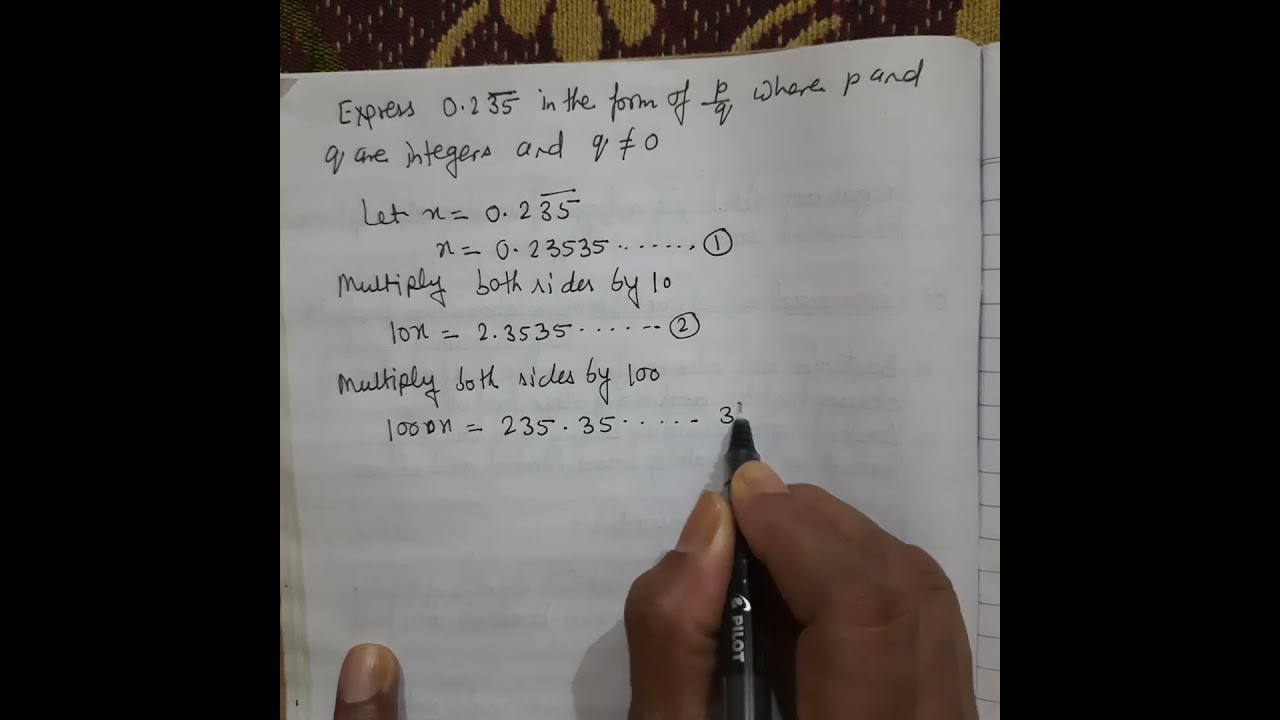 Express 0.23̅5̅ in the form of p/q where p and
q are integers and q ≠ 0
Let x = 0.23̅5̅
x = 0.23535 ....... ①
Multiply both sides by 10
10x = 2.3535 ....... ②
Multiply both sides by 100
1000x = 235.35 ...... 3
PILOT